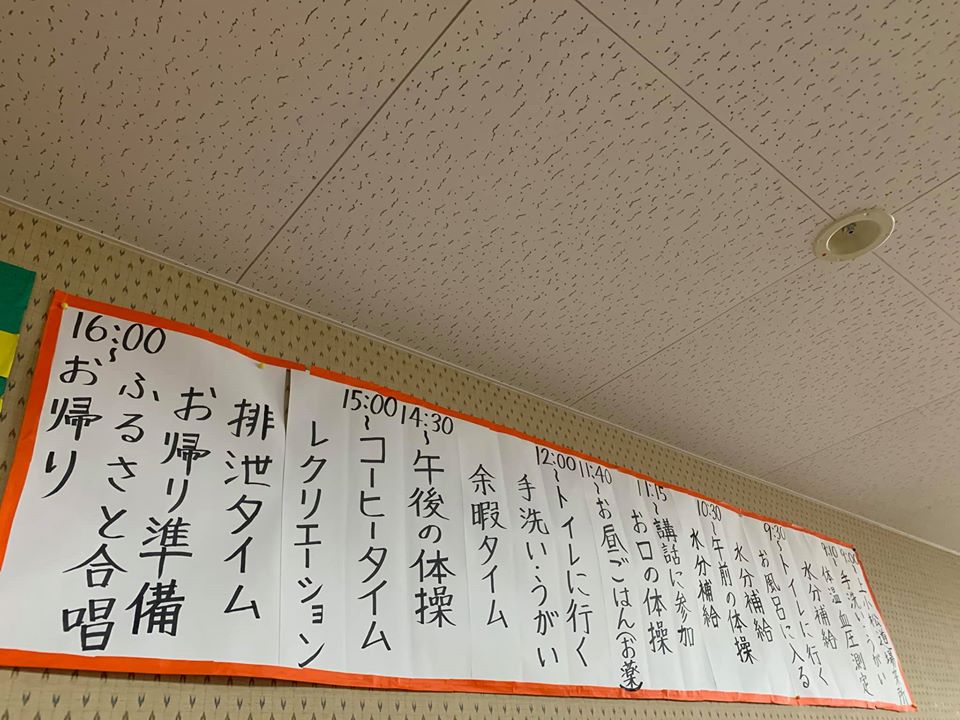 9:00~
手洗い・うがい
9:10~体温血圧測定
水分補給
9:30~トイレに行く
お風呂に入る
水分補給
10:30~午前の体操
水分補給
11:15~講話に参加
お口の体操
11:40~お昼ごはん(お薬)
12:00~トイレに行く
手洗い・うがい
余暇タイム
14:30~午後の体操
15:00~コーヒータイム
レクリエーション
排泄タイム
お帰り準備
ふるさと合唱
16:00~お帰り